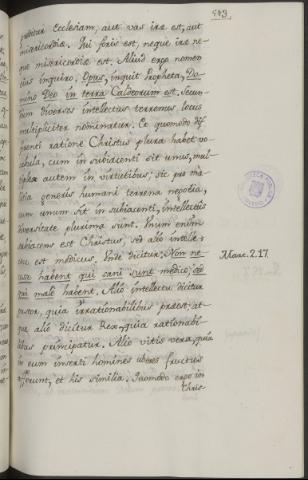 543
praeter Ecclesiam, aut vas irae est, aut
misericordiae. Qui foris est, neque irae ne-
que misericordiae est. Aliud ergo nomen
vas inquiro. Opus, inquit Propheta, Do-
mino Deo in terra Caldeorum est. Secun-
dum diversos intellectus terrenus locus
multipliciter nominatur. Et quomodo
ratione Christus plura habet vo-
cabula, cum in subiacenti sit unus, mul-
tiplex autem in virtutibus; sic per ma-
litia generis humani terrena negotia,
cum unum sit in subiacenti, intellectus
diversitate plurima sunt. Unum enim
subiacens est Christus, sed alio intelle-
ctu est medicus. Unde dicitur. Non ne-
cesse habent qui sani sunt medico, sed
qui male habent. Alio intellectu dicitur
pastor, quia irrationabilibus praeest, at-
que alio dicitur Rex, quia rationabi-
libus principatur. Alio vitis vera, quia
in eum inserti homines uberes fructus
afferunt, et his similia. Quomodo ergo in
Chris-
Marc. 2.17.